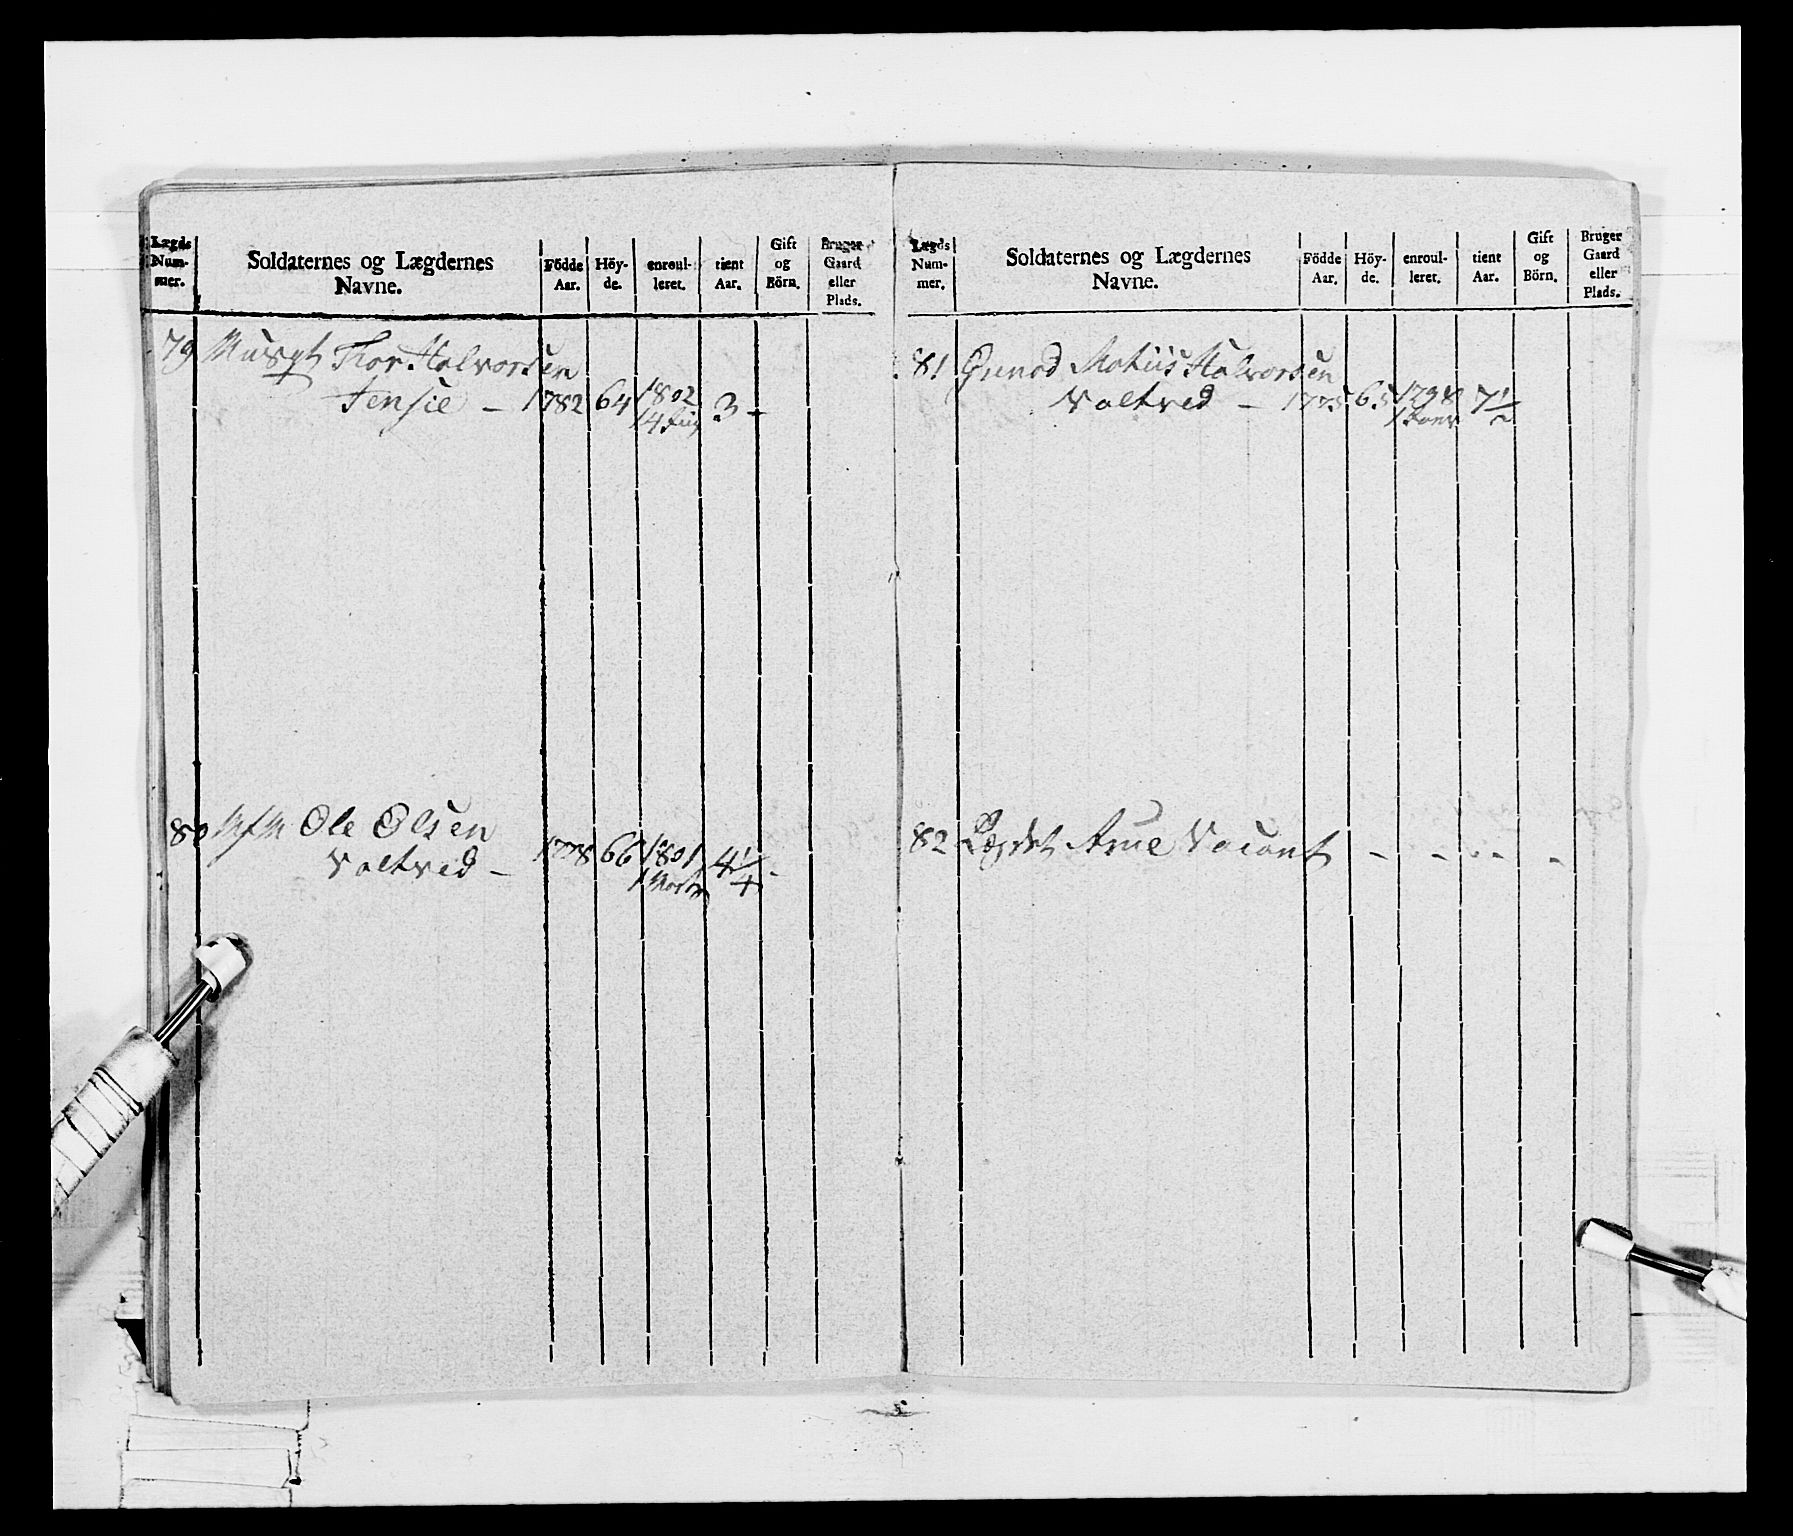 Lægds Num- mer.
Soldaternes og Lægdernes Navne.
Födde Aar.
Höy- de.
enroul- leret.
tient Aar.
Gift og Börn.
Bruger Gaard eller Plads.
79 Musqt Thor Halvorsen
Jensie - 1782 64 1802 3 -
14 Juny
80 Ole Olsen
Valtved - 1778 66 1801 4 1/4 -
1 Martz
Lægds Num- mer.
Soldaternes og Lægdernes Navne.
Födde Aar.
Höy- de.
enroul- leret.
tient Aar.
Gift og Börn.
Bruger Gaard eller Plads.
81 Grenad Mathis Halvorsen
Valtved - 1775 65 1798 7 1/2
1 Janv
82 Lægdet Arue Vacant - - - - -